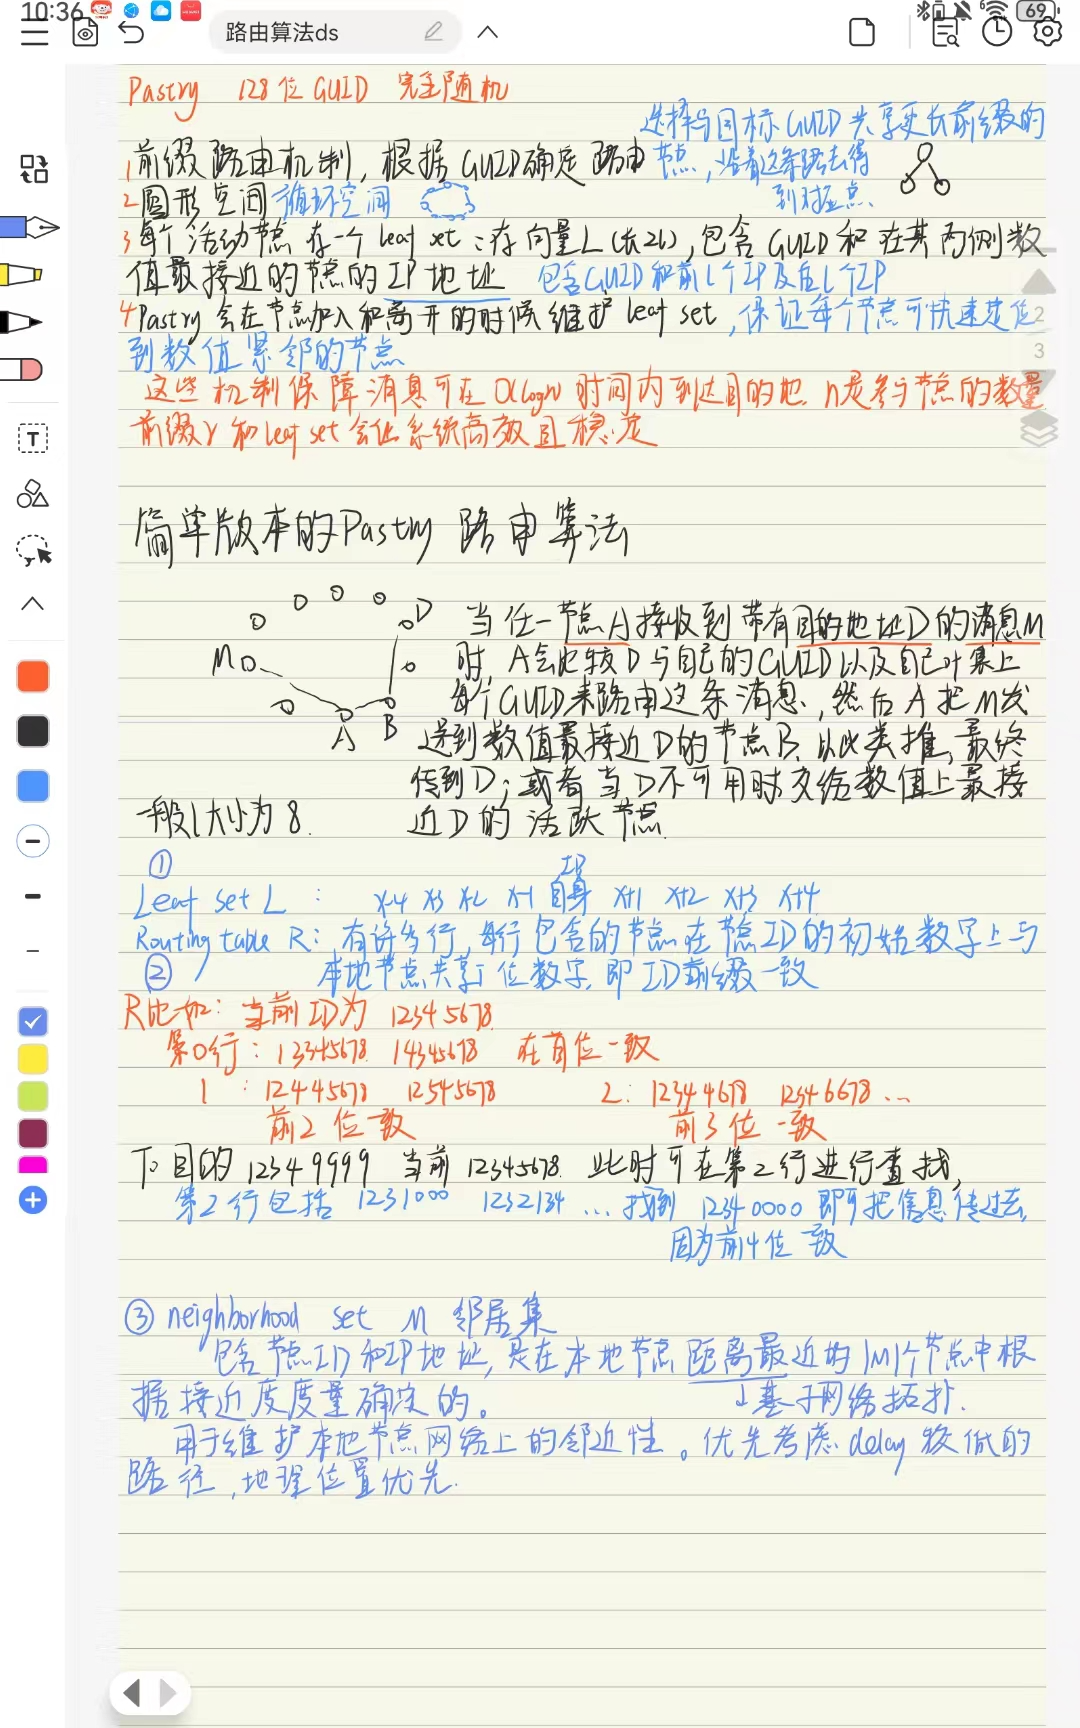 10:36
69
路由算法ds
Pastry 128位GUID 完全随机
选择与目标GUID共享更长前缀的
节点，沿着这条路去得
到对应点
1 前缀路由机制，根据GUID确定路由
2 圆形空间 循环空间
3 每个活动节点存一个leaf set：存向量L(长2l)，包含GUID和在其两侧数
值最接近的节点的IP地址 包含GUID和前l个IP及后l个IP
4 Pastry会在节点加入和离开的时候维护leaf set，保证每个节点可快速定位
到数值紧邻的节点
这些机制保障消息可在O(logn)时间内到达目的地. n是参与节点的数量
前缀r和leaf set会让系统高效且稳定
2
3
T
简单版本的Pastry路由算法
D
M
A
B
当任一节点A接收到带有目的地址D的消息M
时，A会比较D与自己的GUID以及自己叶集上
每个GUID来路由这条消息，然后A把M发
送到数值最接近D的节点B. 以此类推，最终
传到D；或者当D不可用时交给数值上最接
近D的活跃节点.
一般l大小为8.
①
IP
Leaf set L： x-4 x-3 x-2 x-1 自身 x+1 x+2 x+3 x+4
Routing table R：有许多行，每行包含的节点在节点ID的初始数字上与
② 本地节点共享i位数字，即ID前缀一致
R比如：当前ID为 12345678
第0行：13345678 14345678 在首位一致
1：12445678 12545678 2：12344678 12346678 ...
前2位一致 前3位一致
下目的 12349999 当前 12345678. 此时可在第2行进行查找，
第2行包括 1231000 1232134 ... 找到 12340000 即可把信息传过去，
因为前4位一致
③ neighborhood set M 邻居集
包含节点ID和IP地址，是在本地节点距离最近的|M|个节点中根
据接近度度量确定的。 ↓基于网络拓扑.
用于维护本地节点网络上的邻近性。优先考虑delay较低的
路径，地理位置优先.